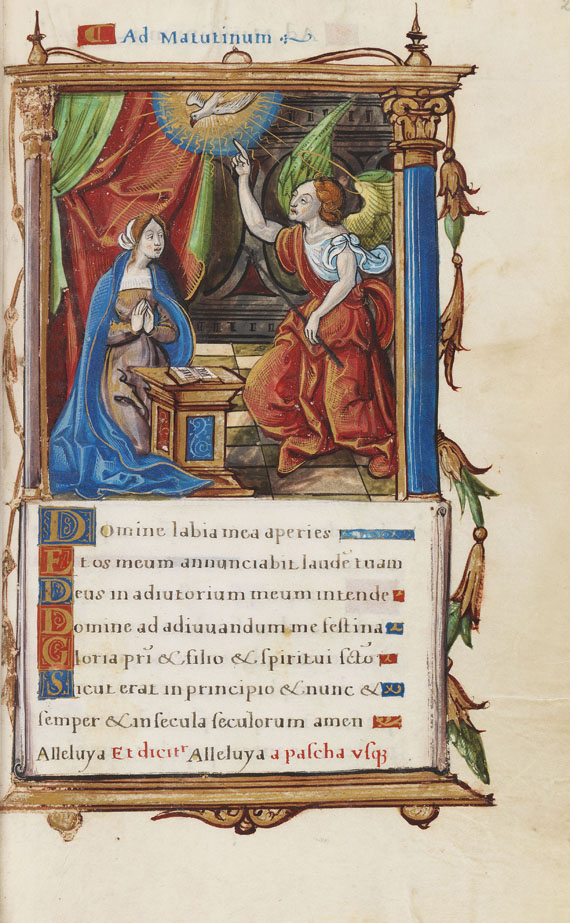 Ad Matutinum
Domine labia mea aperies
Et os meum annunciabit laudē tuam
Deus in adiutorium meum intende
Domine ad adiuuandum me festina
Gloria pr̄i & filio & spiritui sctō
Sicut erat in principio & nunc &
semper & in secula seculorum amen
Alleluya Et dicitʳ Alleluya a pascha vsqꝫ